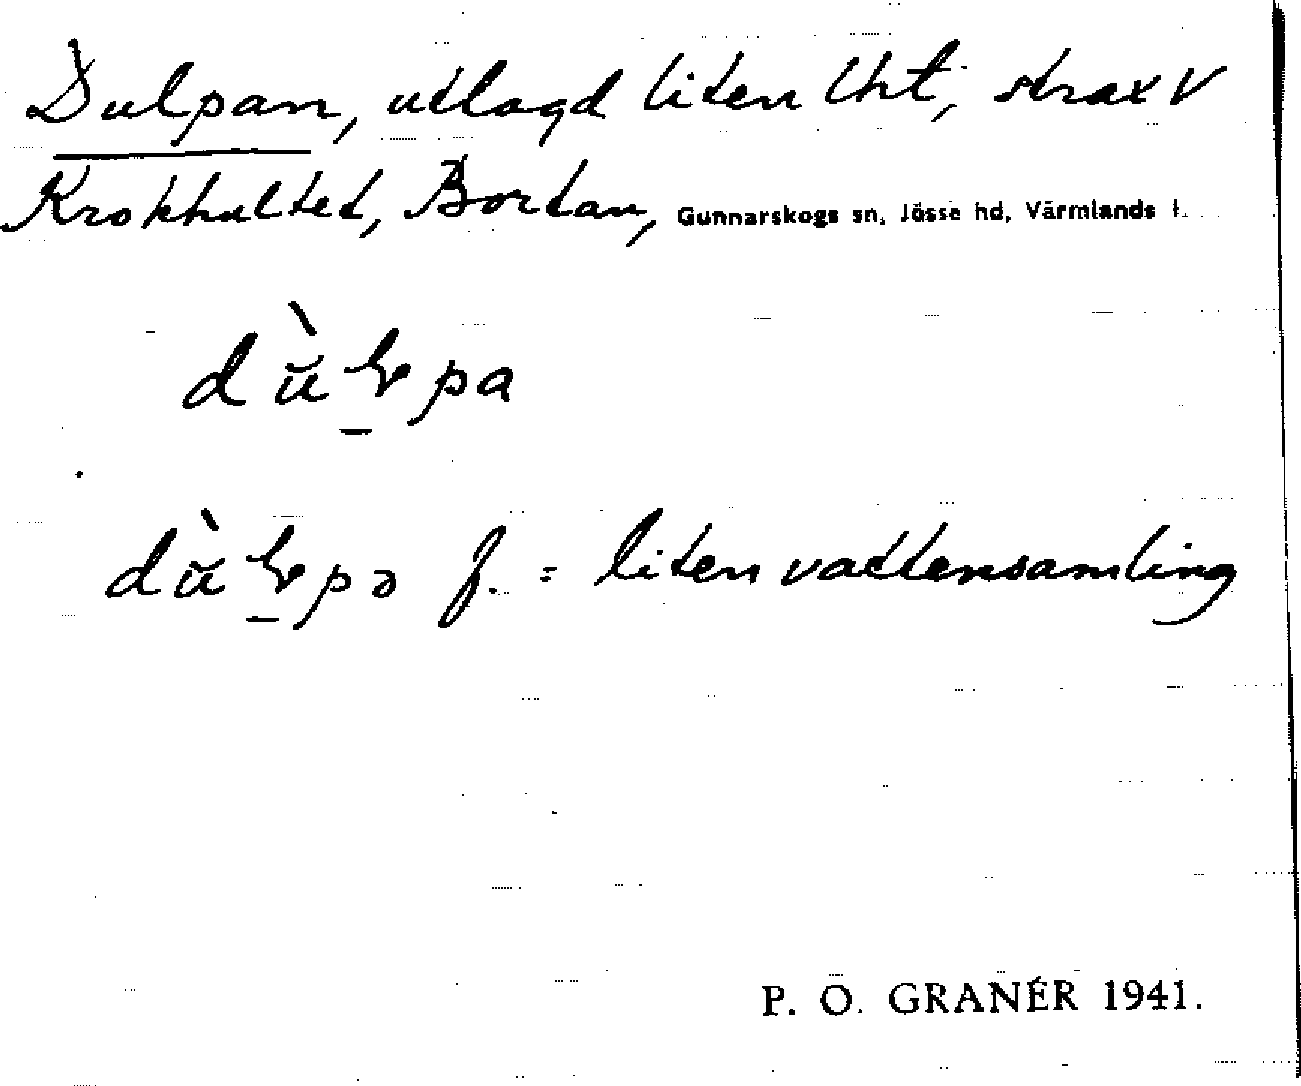 Dulpan, utlagd liten lht, strax V
Krokhultet, Bortan, Gunnarskogs sn, Jösse hd, Värmlands l.
dù̆lpa
dù̆lpə f. = liten vattensamling
P. O. GRANÉR 1941.